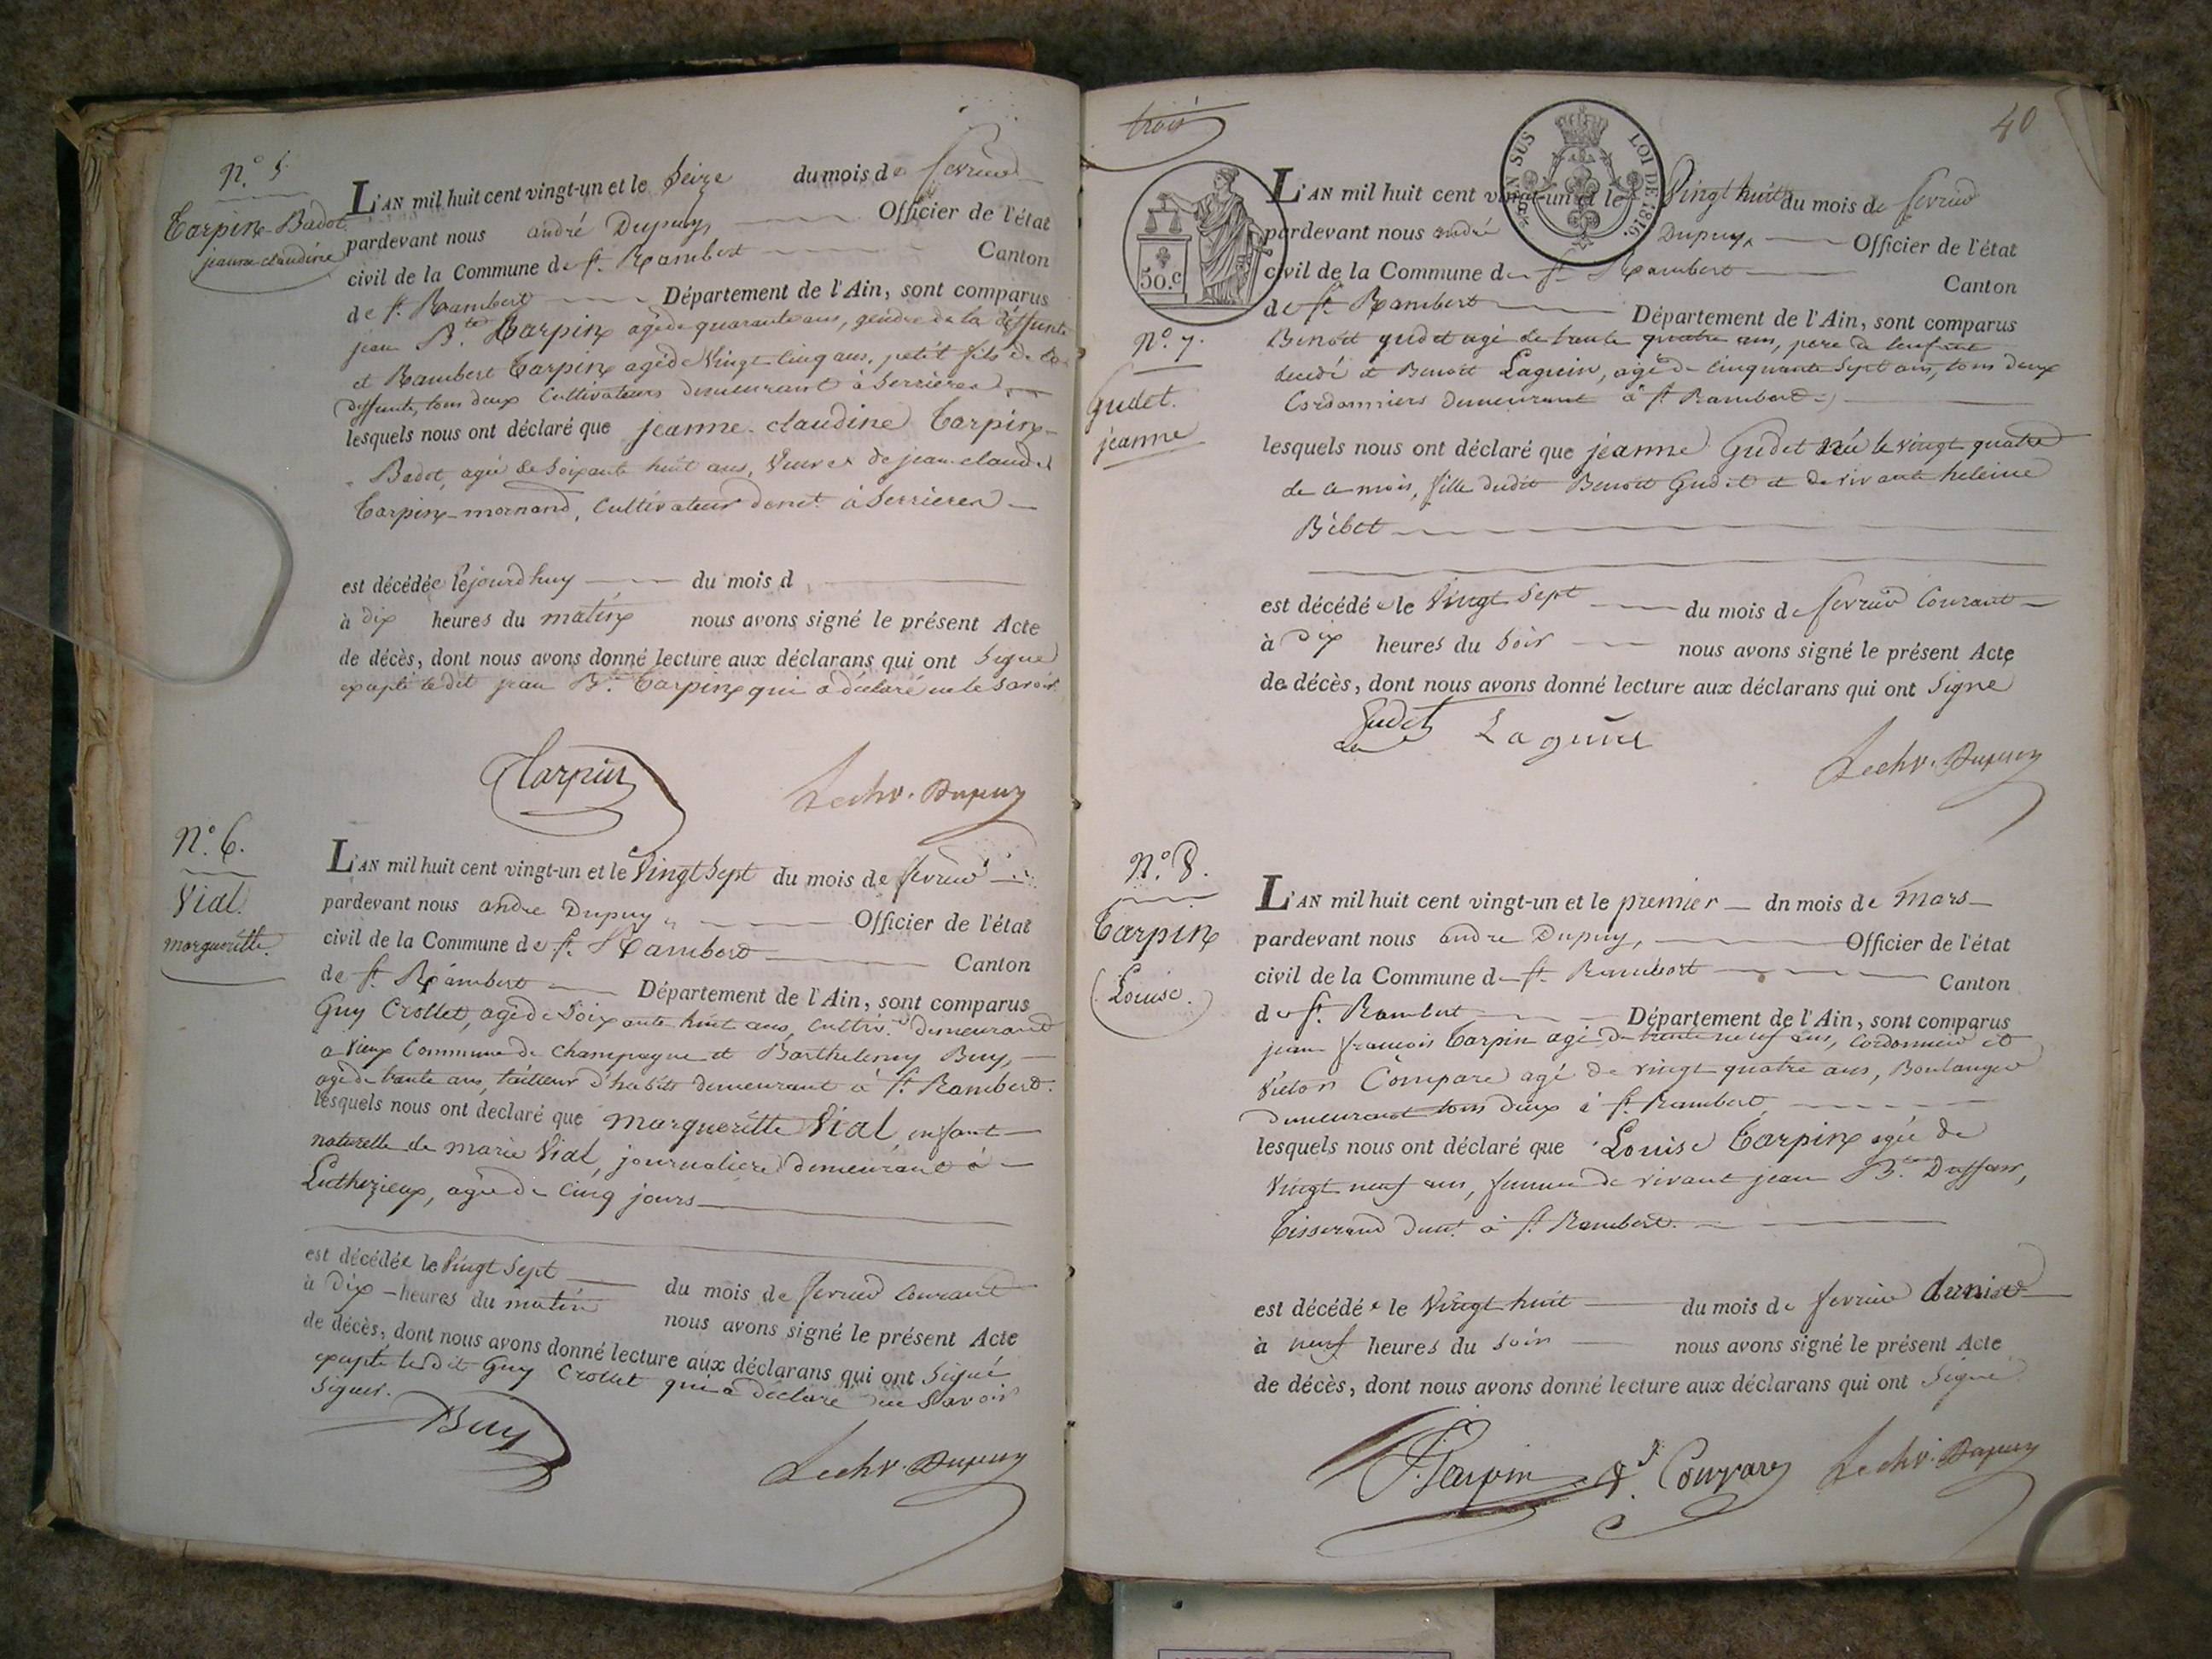 N.° 5.
Tarpin-Badot
jeanne-claudine
L'AN mil huit cent vingt-un et le Seize du mois de fevrier
pardevant nous andré Dupuy, Officier de l'état
civil de la Commune de St. Rambert Canton
de St. Rambert Département de l'Ain, sont comparus
jean Bte. Tarpin agé de quarante ans, gendre de la deffunte
et Rambert Tarpin agé de Vingt Cinq ans, petit fils de la
deffunte, tous deux Cultivateurs demeurant à Serrieres
lesquels nous ont déclaré que jeanne-claudine Tarpin-
Badot, agée de Soixante huit ans, Veuve de jean claude
Tarpin-mornand, Cultivateur demt. à Serrieres
est décédée le jourdhuy du mois d
à dix heures du matin nous avons signé le présent Acte
de décès, dont nous avons donné lecture aux déclarans qui ont Signé
excepté ledit jean Bte. Tarpin qui a déclaré ne le Savoir.
Tarpin
Lechr. Dupuy
N.° 6.
Vial.
margueritte.
L'AN mil huit cent vingt-un et le Vingt Sept du mois de fevrier
pardevant nous andre Dupuy, Officier de l'état
civil de la Commune de St. Rambert Canton
de St. Rambert Département de l'Ain, sont comparus
Guy Crollet, agé de Soixante huit ans, Cultivr. demeurant
a Vieux Commune de Champagne et Barthelemy Buy,
agé de trente ans, tailleur d'habits demeurant à St. Rambert.
lesquels nous ont declaré que margueritte Vial, enfant
naturelle de marie Vial, journaliere demeurant à
Luthezieux, agée de Cinq jours
est décédée le Vingt Sept du mois de fevrier Courant
à dix heures du matin nous avons signé le présent Acte
de décès, dont nous avons donné lecture aux déclarans qui ont Signé
excepté ledit Guy Crollet qui a déclaré ne Savoir
Signer.
Buy
Lechr. Dupuy
trois
40
EN SUS
LOI DE 1816.
50.c
L'AN mil huit cent vingt-un et le Vingt huit du mois de fevrier
pardevant nous andré Dupuy, Officier de l'état
civil de la Commune de St. Rambert Canton
de St. Rambert Département de l'Ain, sont comparus
N.° 7.
Gudet.
jeanne
Benoit gudet agé de trente quatre ans, pere de lenfant
decédé et Benoit Laguin, agé de Cinquante Sept ans, tous deux
Cordonniers Demeurant à St. Rambert
lesquels nous ont déclaré que jeanne Gudet née le vingt quatre
de ce mois, fille dudit Benoit Gudet et de vivante heleine
Bébet
est décédée le Vingt Sept du mois de fevrier Courant
à Dix heures du Soir nous avons signé le présent Acte
de décès, dont nous avons donné lecture aux déclarans qui ont Signé
Gudet Laguin
Lechr. Dupuy
N.° 8.
Tarpin
Louise.
L'AN mil huit cent vingt-un et le premier dn mois de Mars
pardevant nous andre Dupuy, Officier de l'état
civil de la Commune de St. Rambert Canton
de St. Rambert Département de l'Ain, sont comparus
jean francois Tarpin agé de trente neuf ans, Cordonnier et
Victor Compare agé de vingt quatre ans, Boulanger
demeurant tous deux à St. Rambert,
lesquels nous ont déclaré que Louise Tarpin agée de
Vingt neuf ans, femme de vivant jean Bte.
Tisserand demt. à St. Rambert.
est décédée le Vingt huit du mois de fevrier dernier
à neuf heures du Soir nous avons signé le présent Acte
de décès, dont nous avons donné lecture aux déclarans qui ont Signé
Tarpin Compare Lechr. Dupuy